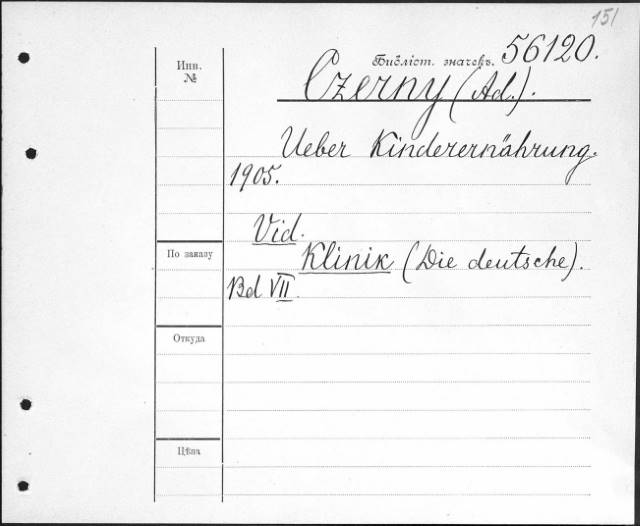 151
Инв.
№
Библіот. значекъ. 56120.
Czerny (Ad.).
Ueber Kinderernährung.
1905.
Vid.
По заказу
Klinik (Die deutsche).
Bd VII.
Откуда
Цѣна